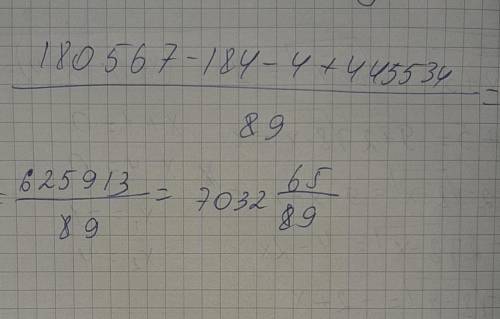 180567-184-4+445534
=
89
= 625913 = 7032 65
89 89